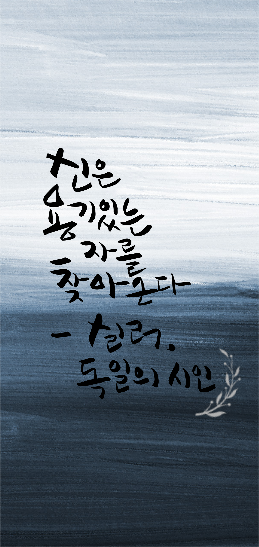 신은
용기있는
자를
찾아온다
- 실러,
독일의 시인